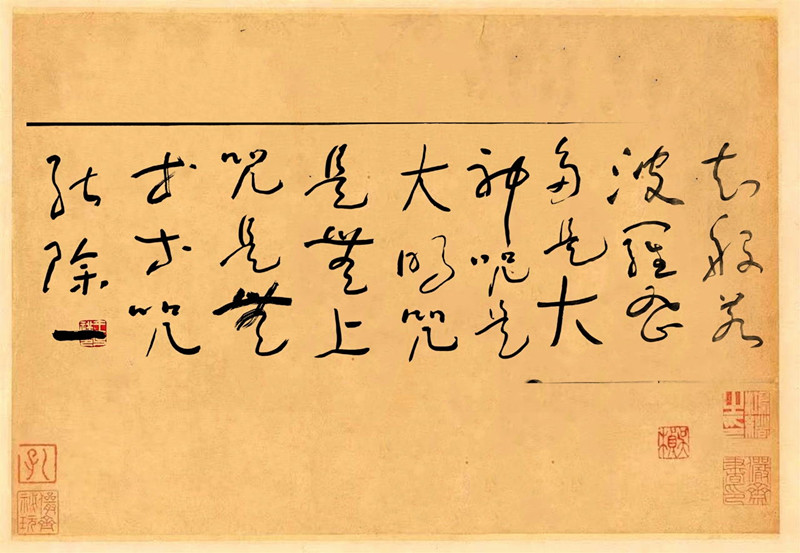 知般若
波羅蜜
多是大
神咒是
大明咒
是無上
咒是無
等等咒
能除一